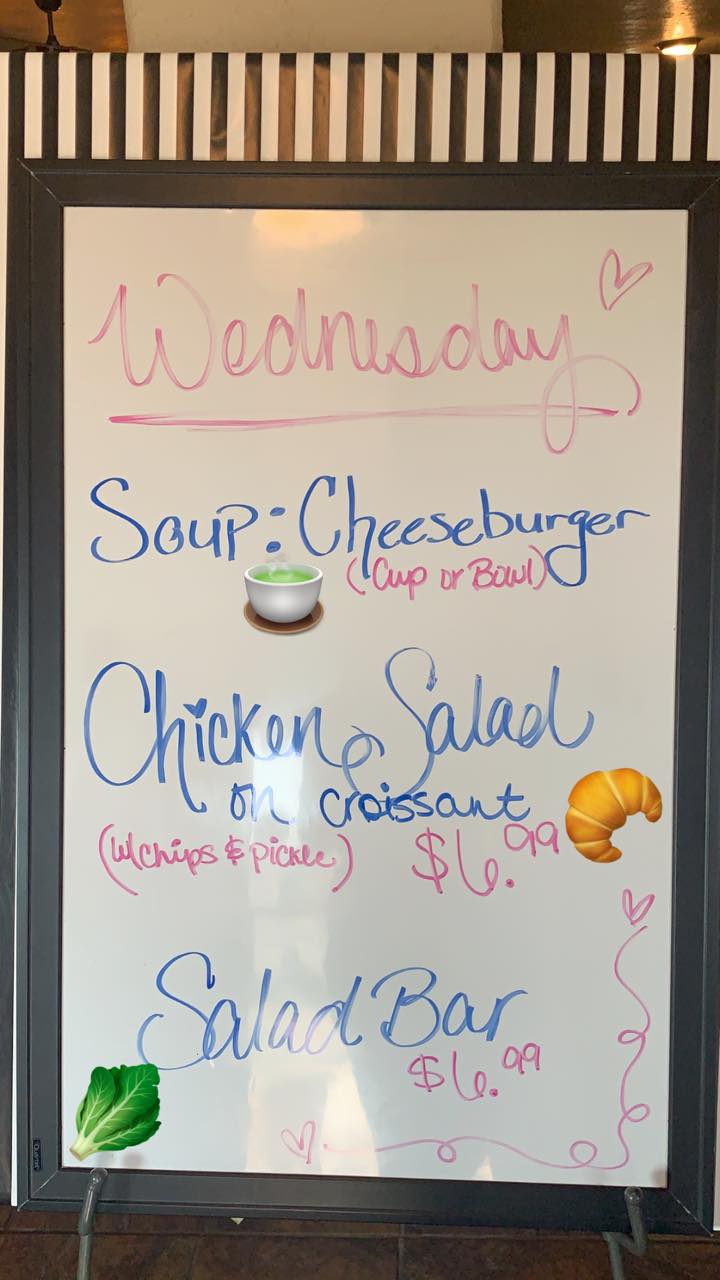 Wednesday
Soup: Cheeseburger
(Cup or Bowl)
Chicken Salad
on croissant
(w/chips & pickle) $6.99
Salad Bar
$6.99